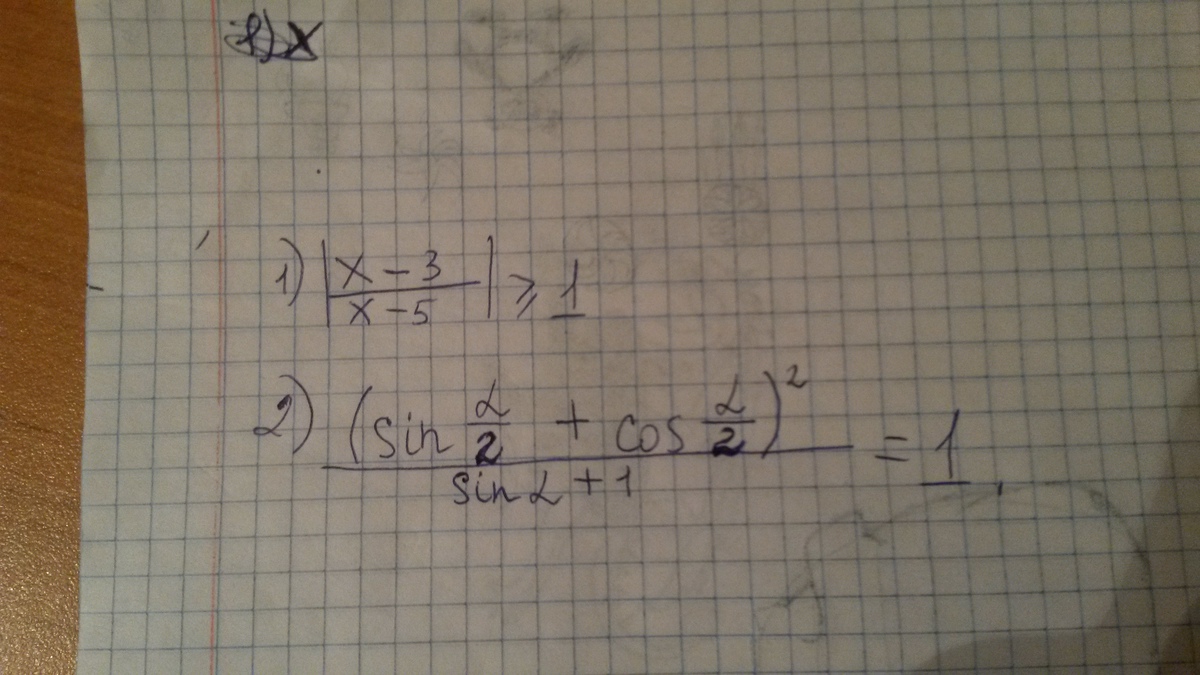 1) |(x - 3)/(x - 5)| ⩾ 1
2) (sin α/2 + cos α/2)² / (sin α + 1) = 1.